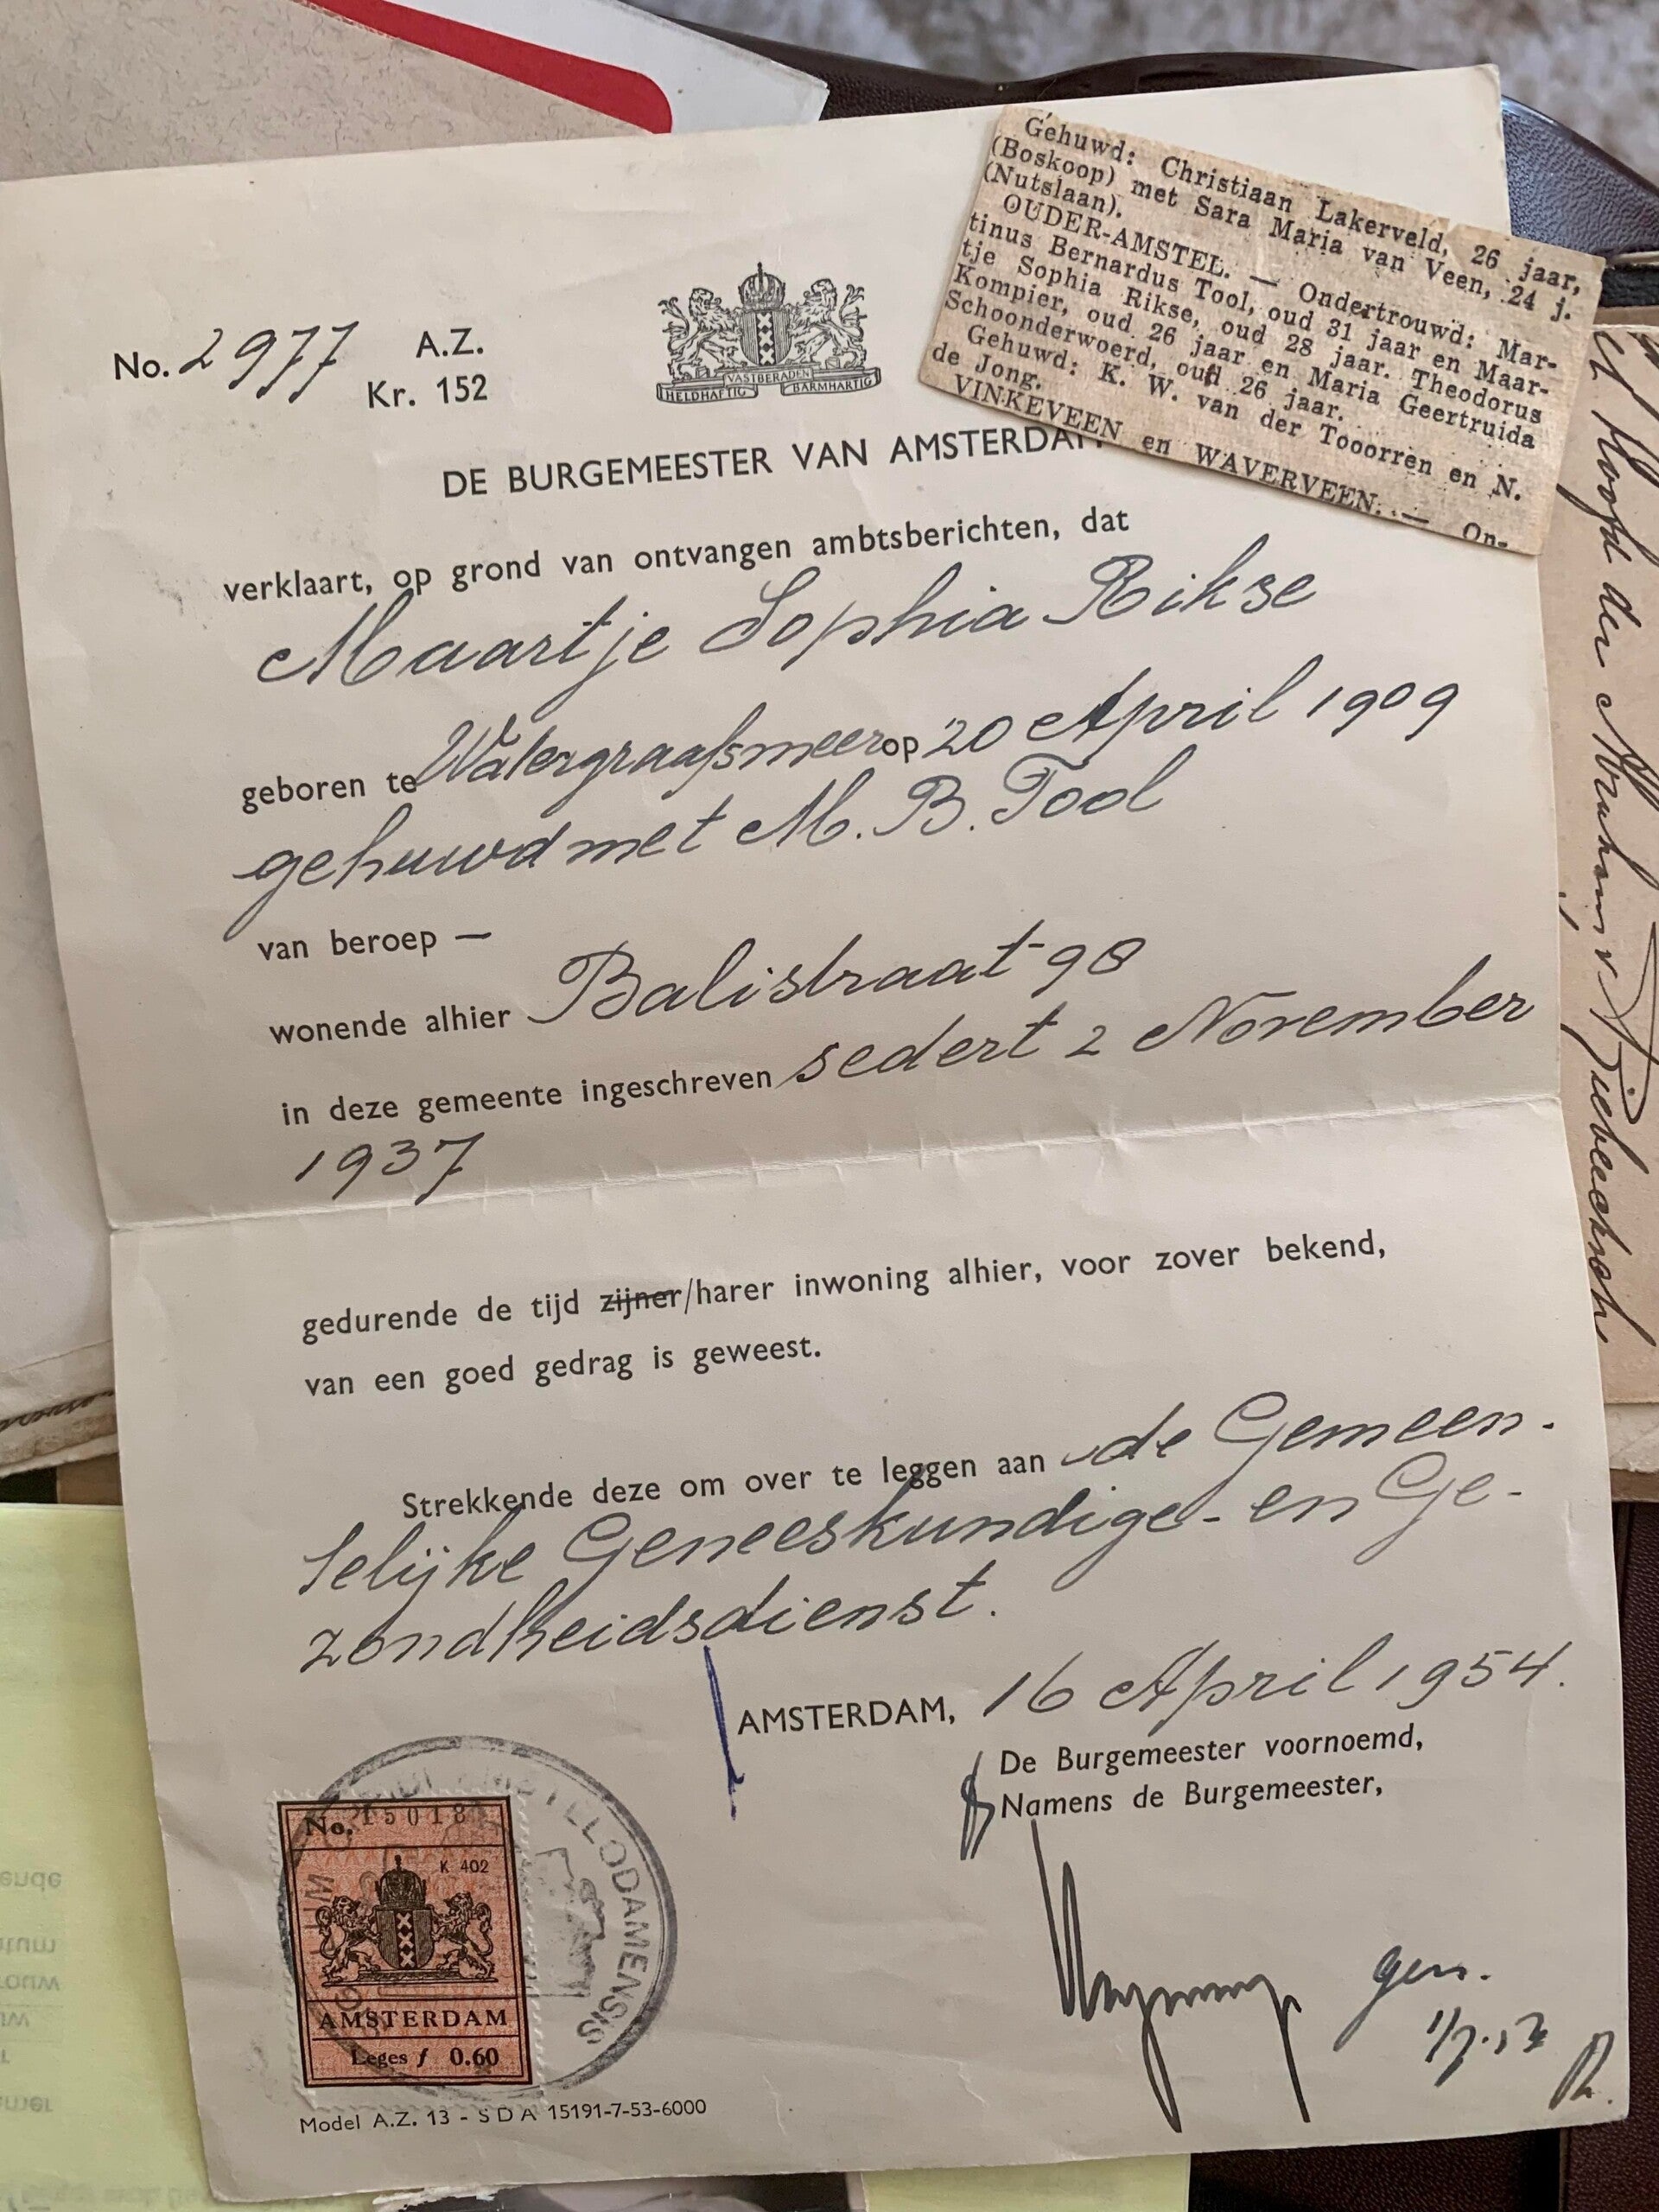 Gehuwd: Christiaan Lakerveld, 26 jaar,
(Boskoop) met Sara Maria van Veen, 24 j.
(Nutslaan).
OUDER-AMSTEL. — Ondertrouwd: Mar-
tinus Bernardus Tool, oud 31 jaar en Maar-
tje Sophia Rikse, oud 28 jaar. Theodorus
Kompier, oud 26 jaar en Maria Geertruida
Schoonderwoerd, oud 26 jaar.
Gehuwd: K. W. van der Tooorren en N.
de Jong.
VINKEVEEN en WAVERVEEN. — On-
No. 2977 A.Z.
Kr. 152
HELDHAFTIG VASTBERADEN BARMHARTIG
DE BURGEMEESTER VAN AMSTERDAM
verklaart, op grond van ontvangen ambtsberichten, dat
Maartje Sophia Rikse
geboren te Watergraafsmeer op 20 April 1909
gehuwd met M. B. Tool
van beroep —
wonende alhier Balistraat 98
in deze gemeente ingeschreven sedert 2 November
1937
gedurende de tijd zijner/harer inwoning alhier, voor zover bekend,
van een goed gedrag is geweest.
Strekkende deze om over te leggen aan de Gemeen-
telijke Geneeskundige- en Ge-
zondheidsdienst.
AMSTERDAM, 16 April 1954.
De Burgemeester voornoemd,
Namens de Burgemeester,
gen.
No. 15018
K 402
AMSTERDAM
Leges f 0.60
AMSTELODAMENSIS
Model A.Z. 13 - S D A 15191-7-53-6000
het Hoofd der
Riebeeckschool